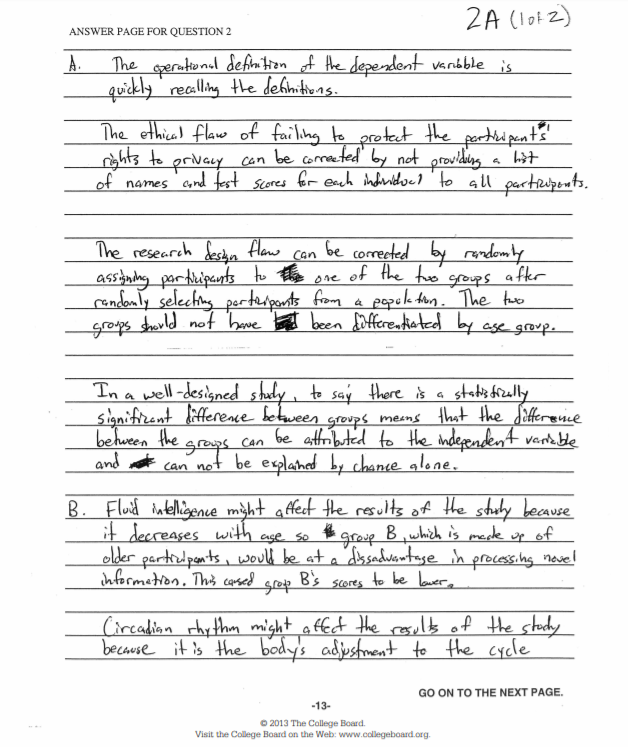 2A (1 of 2)
ANSWER PAGE FOR QUESTION 2
A. The operational definition of the dependent variable is
quickly recalling the definitions.
The ethical flaw of failing to protect the participants'
rights to privacy can be corrected by not providing a list
of names and test scores for each individual to all participants.
The research design flaw can be corrected by randomly
assigning participants to one of the two groups after
randomly selecting participants from a population. The two
groups should not have been differentiated by age group.
In a well-designed study, to say there is a statistically
significant difference between groups means that the difference
between the groups can be attributed to the independent variable
and can not be explained by chance alone.
B. Fluid intelligence might affect the results of the study because
it decreases with age so group B, which is made up of
older participants, would be at a dissadvantage in processing novel
information. This caused group B's scores to be lower.
Circadian rhythm might affect the results of the study
because it is the body's adjustment to the cycle
GO ON TO THE NEXT PAGE.
-13-
© 2013 The College Board.
Visit the College Board on the Web: www.collegeboard.org.